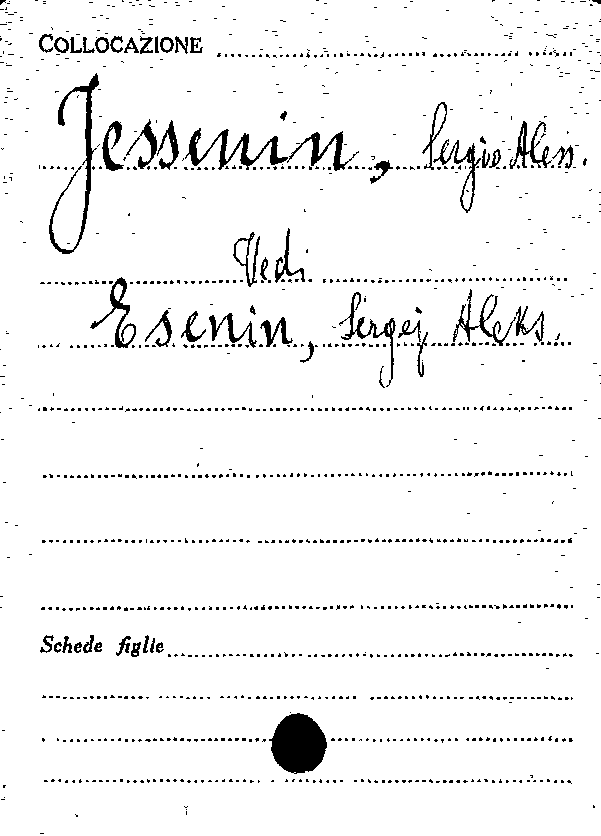 COLLOCAZIONE
Jessenin, Sergio Aless.
Vedi
Esenin, Sergej Aleks.
Schede figlie